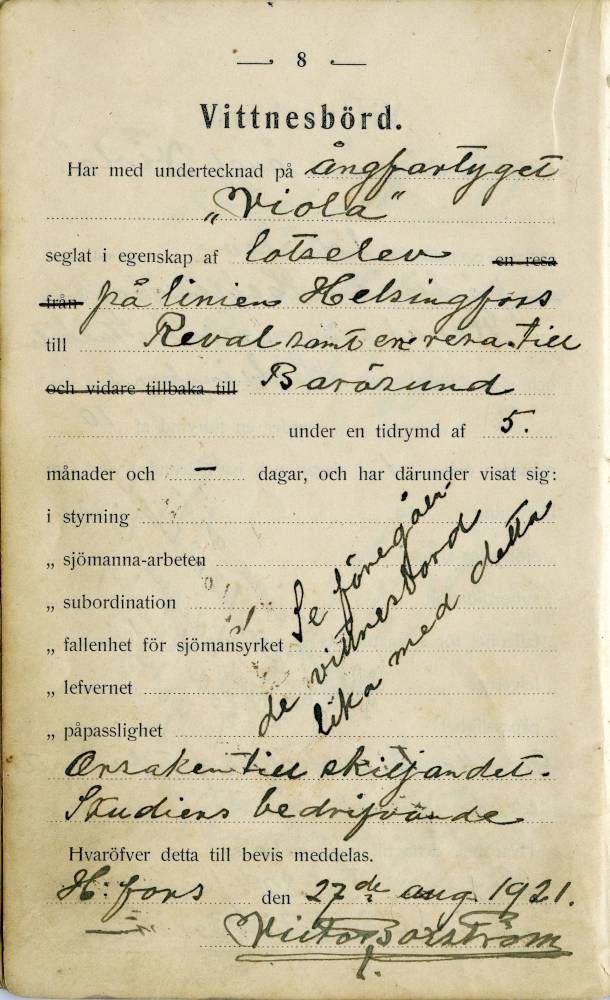 — 8 —
Vittnesbörd.
Har med undertecknad på ångfartyget
„Viola“
seglat i egenskap af lotselev en resa
från på linien Helsingfors
till Reval samt en resa till
och vidare tillbaka till Barösund
under en tidrymd af 5.
månader och — dagar, och har därunder visat sig:
i styrning
„ sjömanna-arbeten
„ subordination
„ fallenhet för sjömansyrket
„ lefvernet
„ påpasslighet
Se föregåen-
de vittnesbord
lika med detta
Orsaken till skiljandet.
Studiers bedrifvande
Hvaröfver detta till bevis meddelas.
H:fors den 27de aug. 1921.
Victor Borström